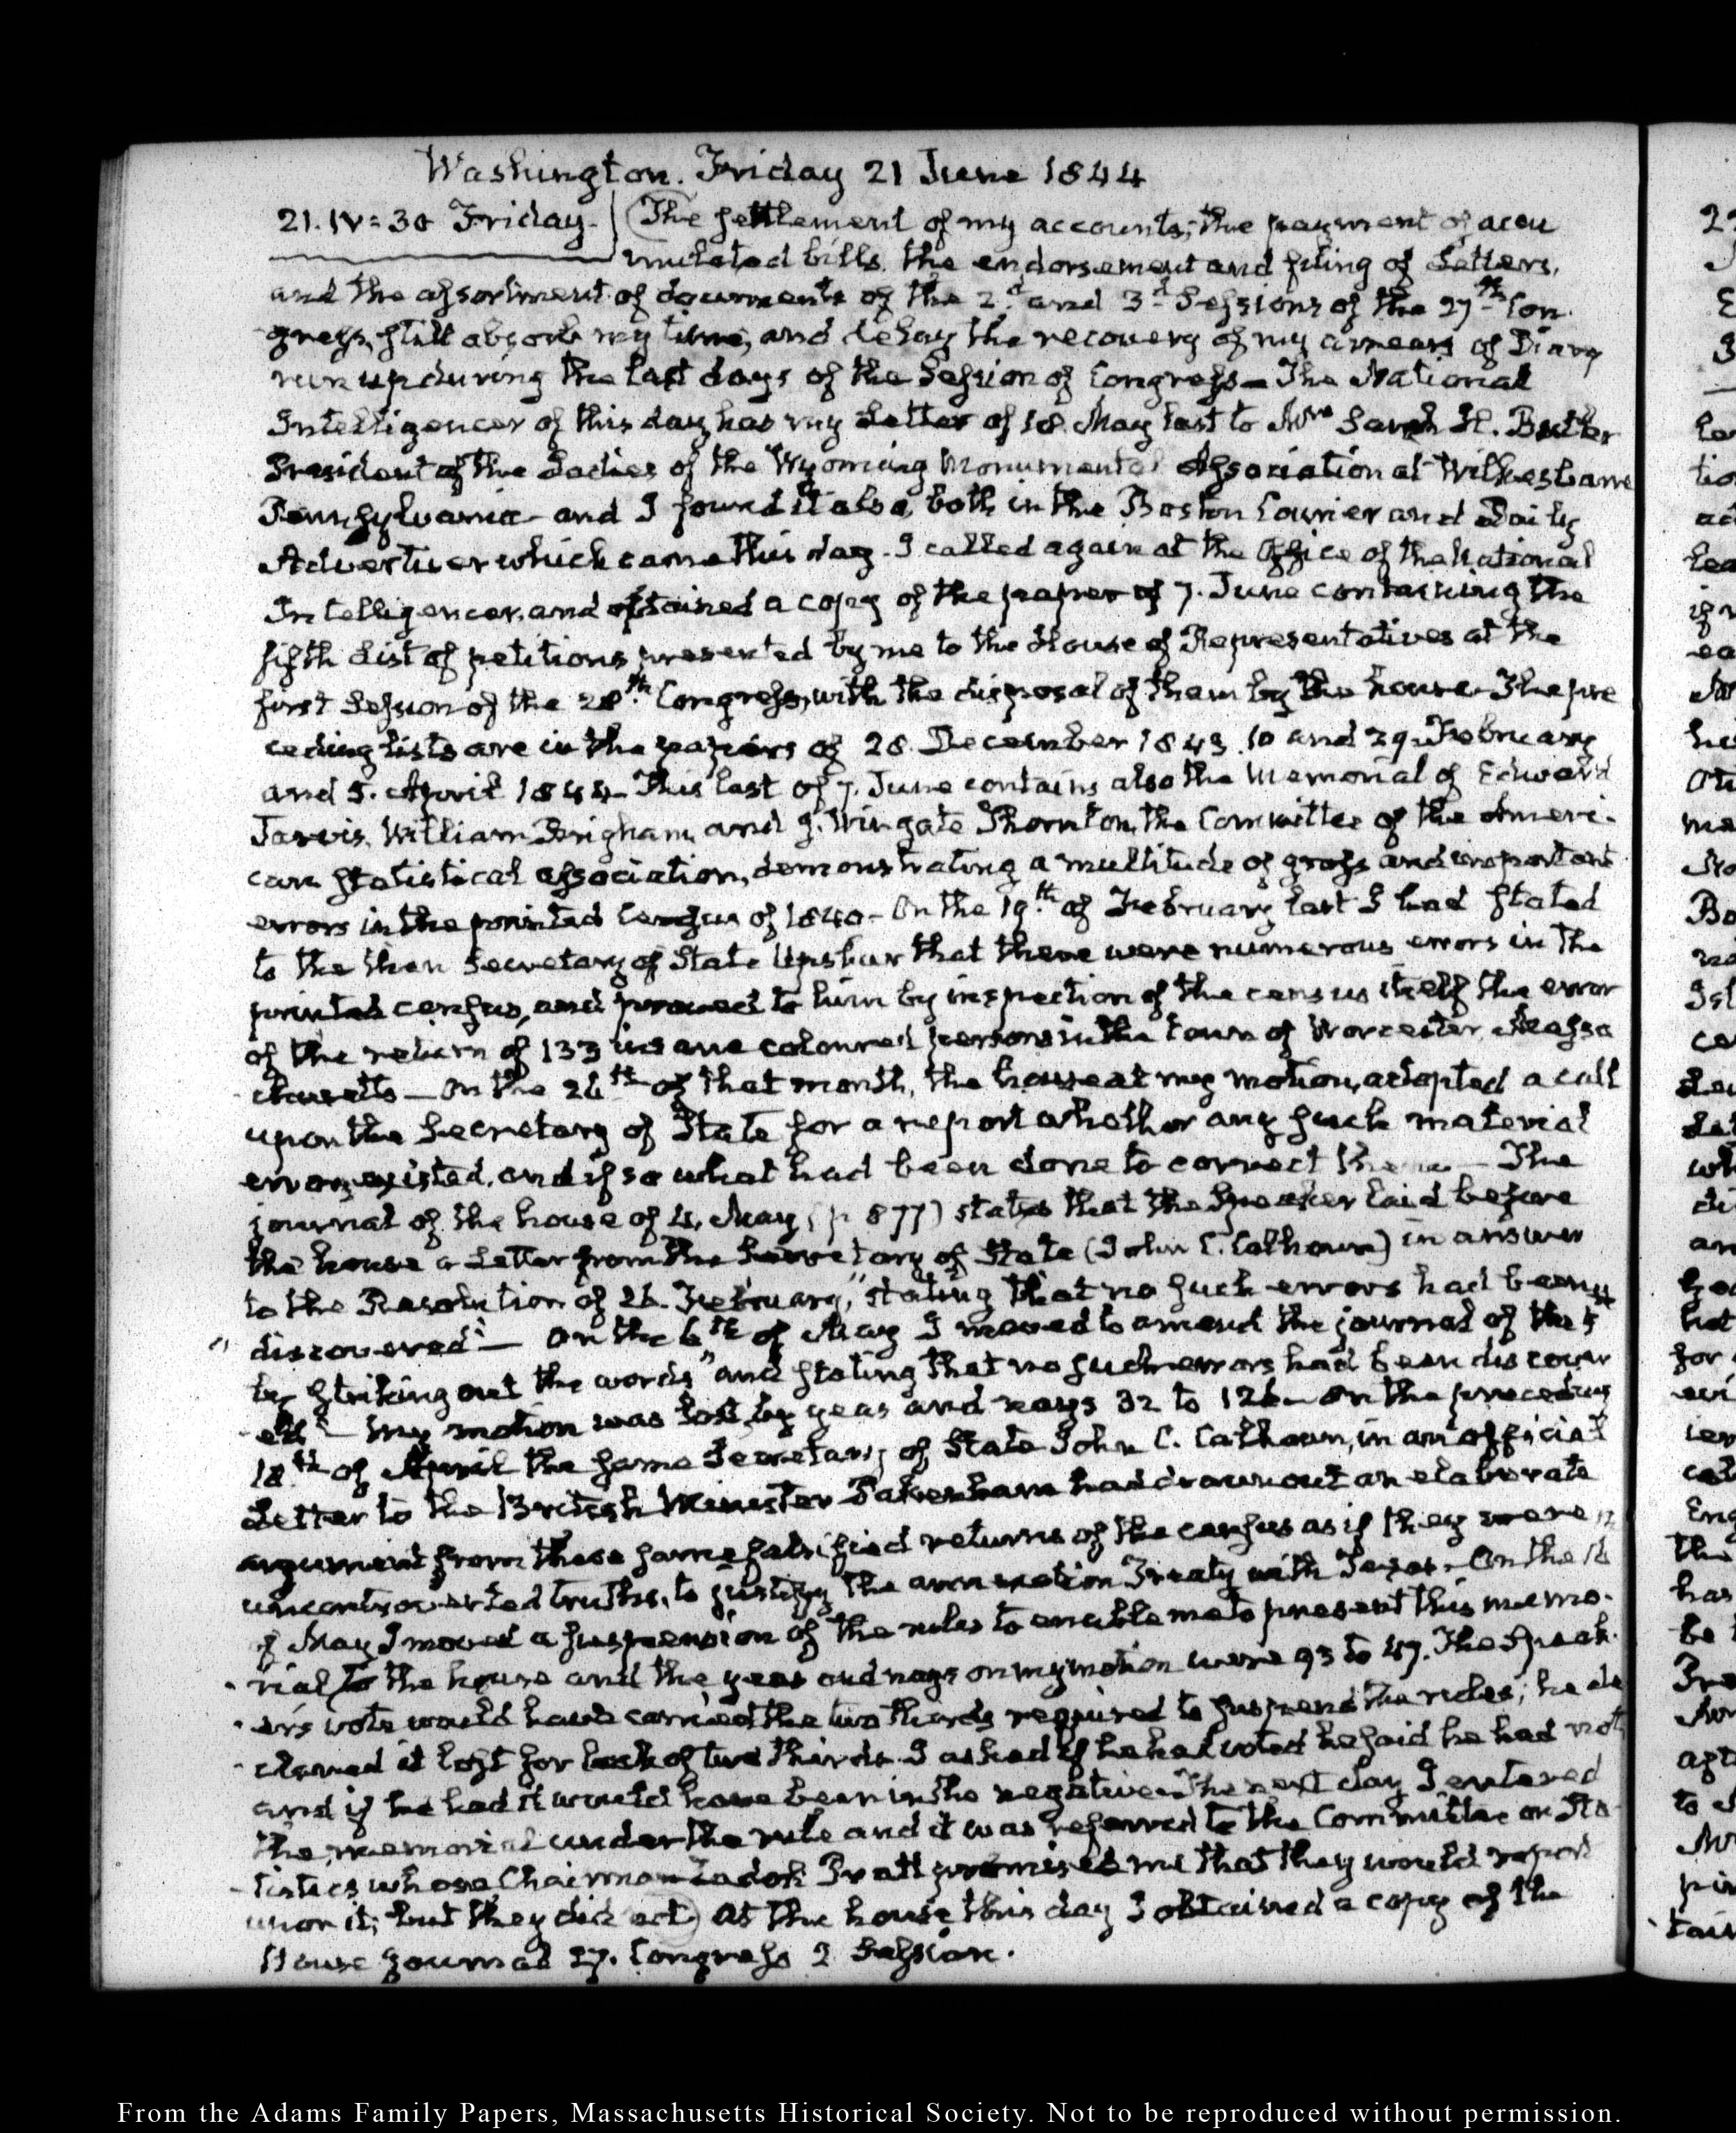 Washington. Friday 21 June 1844
21. IV=30 Friday. The settlement of my accounts; the payment of accu
mulated bills, the endorsement and filing of Letters,
and the assortment of documents of the 2d. and 3d. Sessions of the 27th. Con
gress, still absorb my time, and delay the recovery of my arrears of Diary
run up during the last days of the Session of Congress— The National
Intelligencer of this day has my Letter of 18. May last to Mrs Sarah H. Butler
President of the Ladies of the Wyoming Monumental Association at Wilkesbarre
Pennsylvania— and I found it also, both in the Boston Courier and Daily
Advertiser which came this day. I called again at the Office of the National
Intelligencer, and obtained a copy of the paper of 7. June containing the
fifth List of petitions presented by me to the House of Representatives at the
first Session of the 28th. Congress, with the disposal of them by the house. The pre
ceding lists are in the papers of 28 December 1843. 10 and 29. February
and 5. April 1844— This last of 7. June contains also the Memorial of Edward
Jarvis, William Brigham, and J. Wingate Thornton, the Committee of the Ameri-
can Statistical association, demonstrating a multitude of gross and important
errors in the printed Census of 1840— On the 19th. of February last I had stated
to the then Secretary of State Upshur that there were numerous errors in the
printed census, and proved to him by inspection of the census itself the error
of the return of 133 insane coloured persons in the town of Worcester, Massa
chusetts— On the 26th of that month, the house at my motion, adopted a call
upon the Secretary of State for a report whether any such material
errors existed, and if so what had been done to correct them— The
journal of the house of 4. May (p 877) states that the Speaker laid before
the house a Letter from the Secretary of State (John C. Calhoun) in answer
to the Resolution of 26. February, "stating that no such errors had been
" discovered"— On the 6th of May I moved to amend the journal of the 4
by striking out the words "and stating that no such errors had been discover
ed"— My motion was lost, by yeas and nays 32 to 126— On the preceding
18th of April the same Secretary of State John C. Calhoun, in an official
Letter to the British Minister Pakenham had drawn out an elaborate
argument from these same falsified returns of the census as if they were
uncontroverted truths, to justify the annexation Treaty with Texas. On the
of May I moved a suspension of the rules to enable me to present this memo-
rial to the house and the yeas and nays on my motion were 93 to 47. The Speak-
er's vote would have carried the two thirds required to suspend the rules; he de
clared it lost for lack of two thirds. I asked if he had voted he said he had not
and if he had it would have been in the negative— The next day I entered
the memorial under the rule and it was referred to the Committee on Sta-
tistics whose Chairman Zadok Pratt promised me that they would report
upon it; but they did not) At the house this day I obtained a copy of the
House Journal 27. Congress 2 Session.
From the Adams Family Papers, Massachusetts Historical Society. Not to be reproduced without permission.